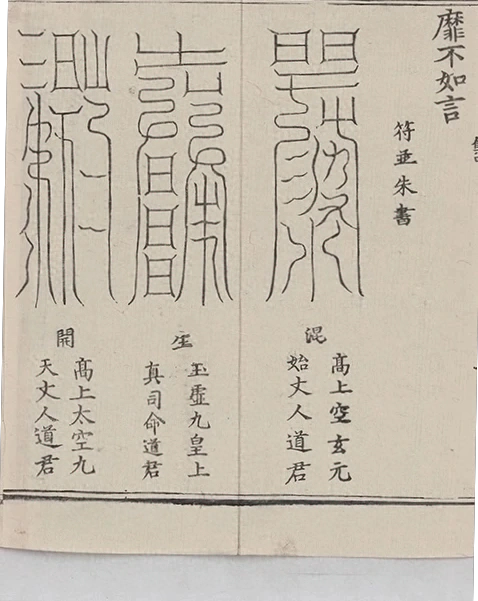 靡不如言
符並朱書
混
高上空玄元
始丈人道君
生
玉虛九皇上
真司命道君
開
高上太空九
天丈人道君